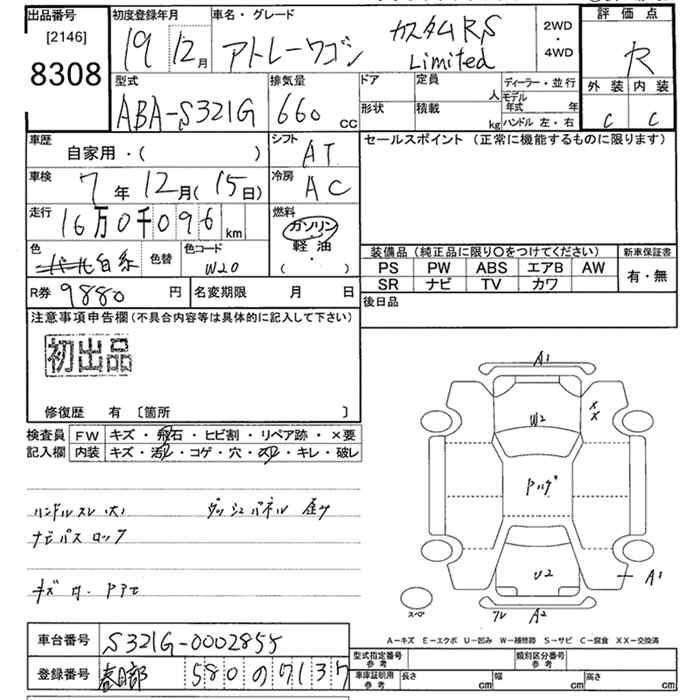 出品番号 初度登録年月 車名・グレード 2WD 評価点
[2146] 19 12月 アトレーワゴン カスタムRS Limited ・ R
8308 4WD
型式 排気量 ドア 定員 人 ディーラー・並行 外装 内装
ABA-S321G 660 cc 形状 積載 kg モデル年式 年 C C
ハンドル 左・右
車歴 自家用・( ) シフト AT セールスポイント (正常に機能するものに限ります)
車検 7年 12月(15日) 冷房 AC
走行 16万0千096 km 燃料 ガソリン
軽油
( ・ )
色 パール白系 色替 色コード W20
装備品 (純正品に限り〇をつけてください) 新車保証書
PS PW ABS エアB AW 有・無
SR ナビ TV カワ
R券 9880 円 名変期限 月 日 後日品
注意事項申告欄 (不具合内容等は具体的に記入して下さい)
初出品
修復歴 有 〔箇所 〕
検査員 FW キズ・飛石・ヒビ割・リペア跡・×要
記入欄 内装 キズ・汚れ・コゲ・穴・スレ・キレ・破レ
ハンドルスレ(大) ダッシュパネル
ナビパスロック
A1
W2
XX
U2
A1
A2
スペア
A-キズ E-エクボ U-凹み W-補修跡 S-サビ C-腐食 XX-交換済
車台番号 S321G-0002855
登録番号 春日部 580 の 7137
型式指定番号 参考 類別区分番号 参考
車庫証明用 参考 長さ cm 幅 cm 高さ cm